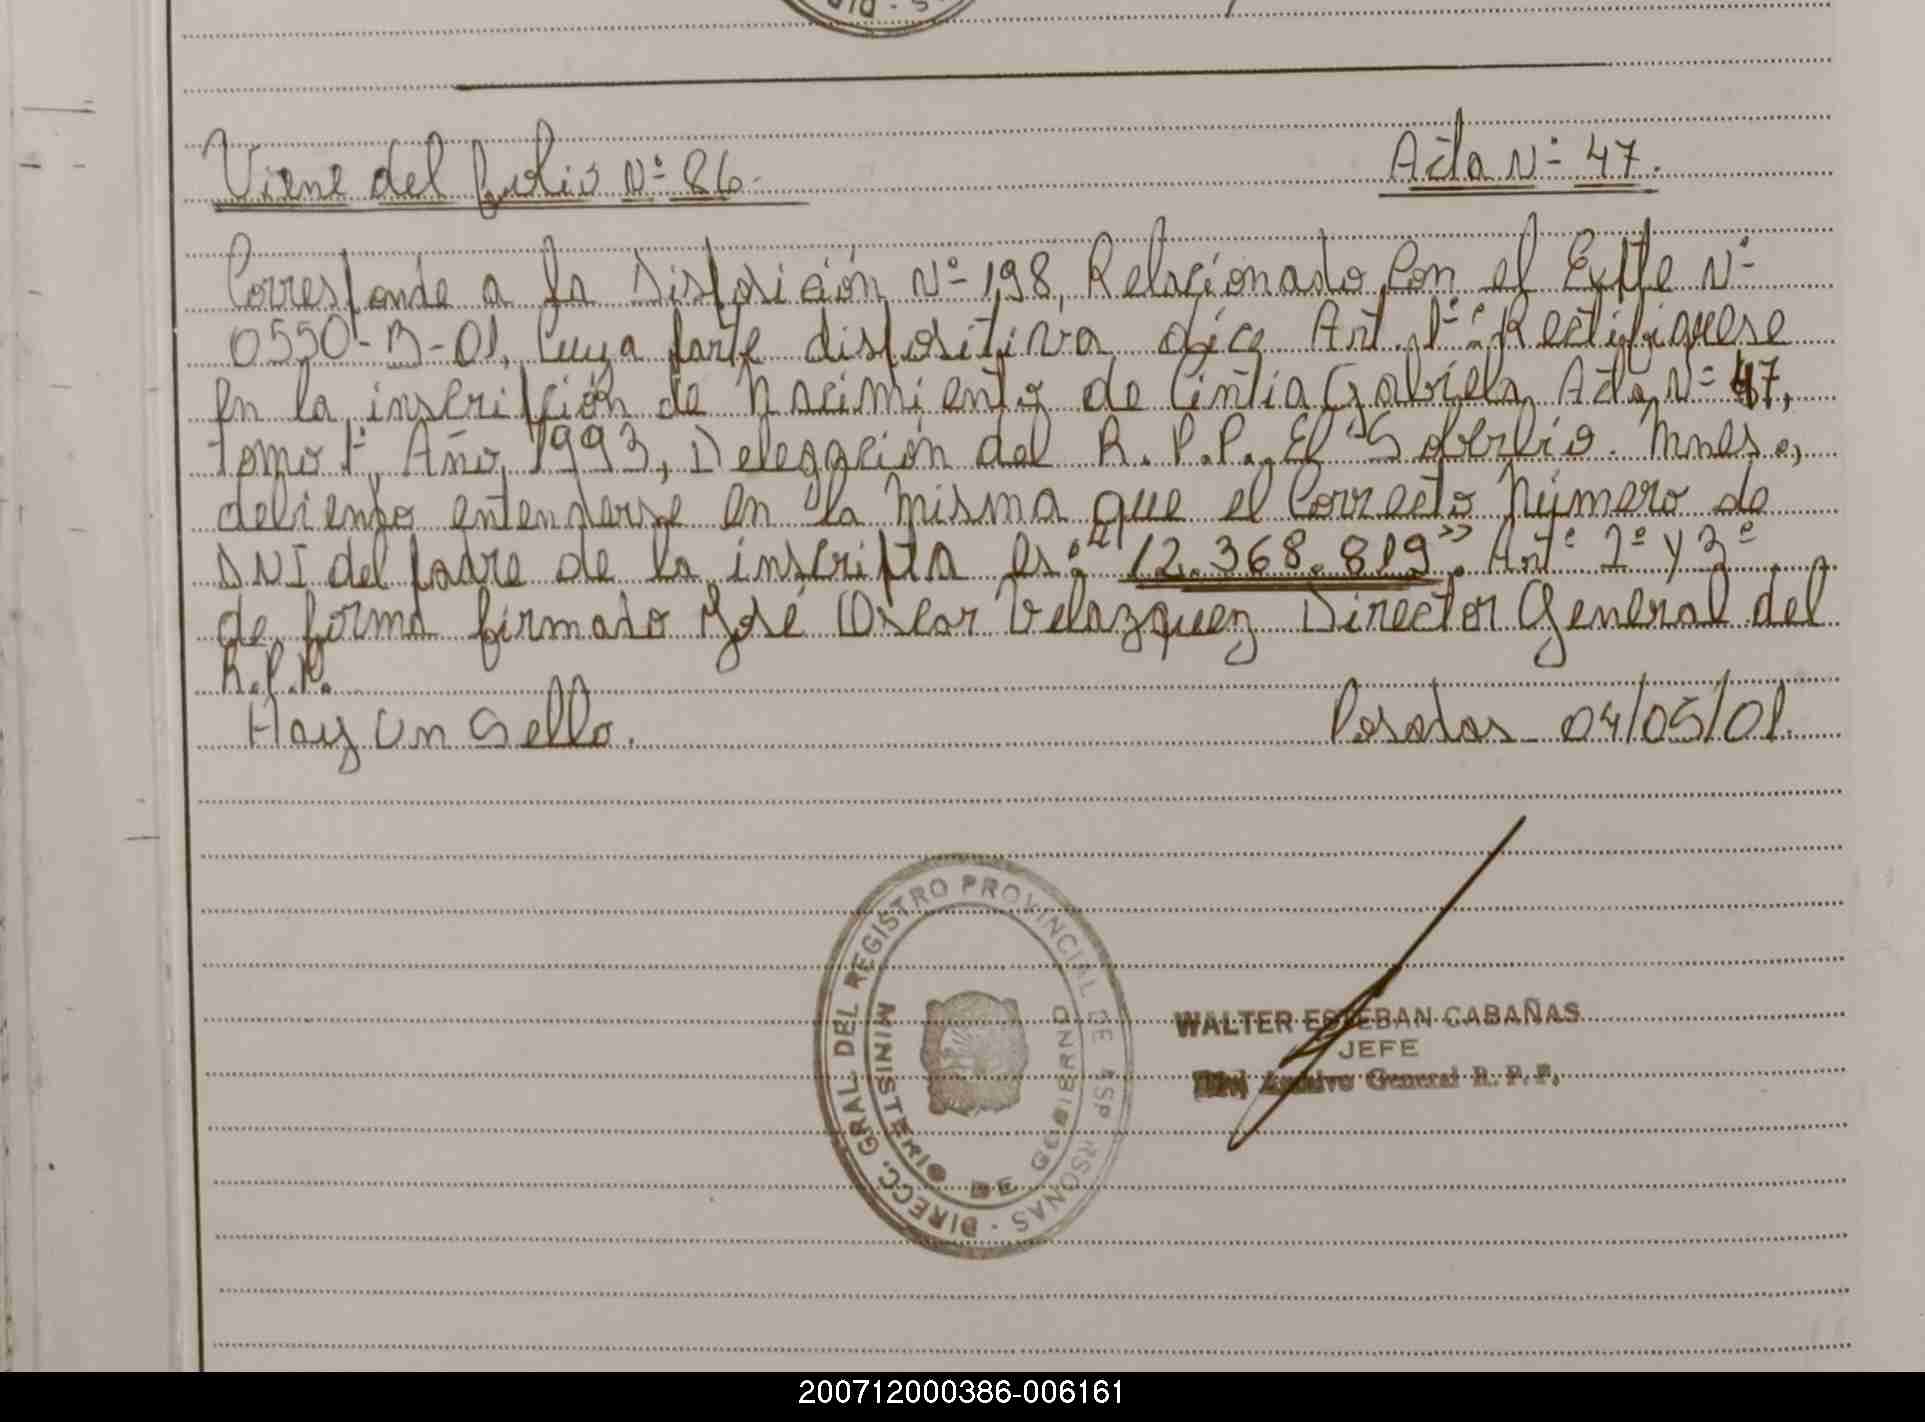 Viene del folio Nº 86.
Acta Nº 47.
Corresponde a la Disposición Nº 198, Relacionado Con el Expte Nº
0550-B-01, Cuya parte dispositiva dice Art. 1º: Rectifiquese
en la inscripción de Nacimiento de Cintia Gabriela, Acta Nº 47,
tomo 1º, Año 1993, Delegación del R.P.P. El Soberbio. Mnes.,
debiendo entenderse en la misma que el Correcto Número de
DNI del padre de la inscripta es: "12.368.819". Artº 2º y 3º
de forma firmado José Oscar Velazquez Director General del
R.P.P.
Hay Un Sello.
Posadas 04/05/01.
DIRECC. GRAL. DEL REGISTRO PROVINCIAL DE
RSONAS
MINISTERIO DE GOBIERNO
WALTER ESTEBAN CABAÑAS
JEFE
Archivo General R.P.P.
200712000386-006161